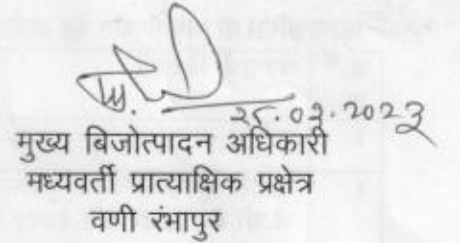 २८.०२.२०२३
मुख्य बिजोत्पादन अधिकारी
मध्यवर्ती प्रात्याक्षिक प्रक्षेत्र
वणी रंभापुर